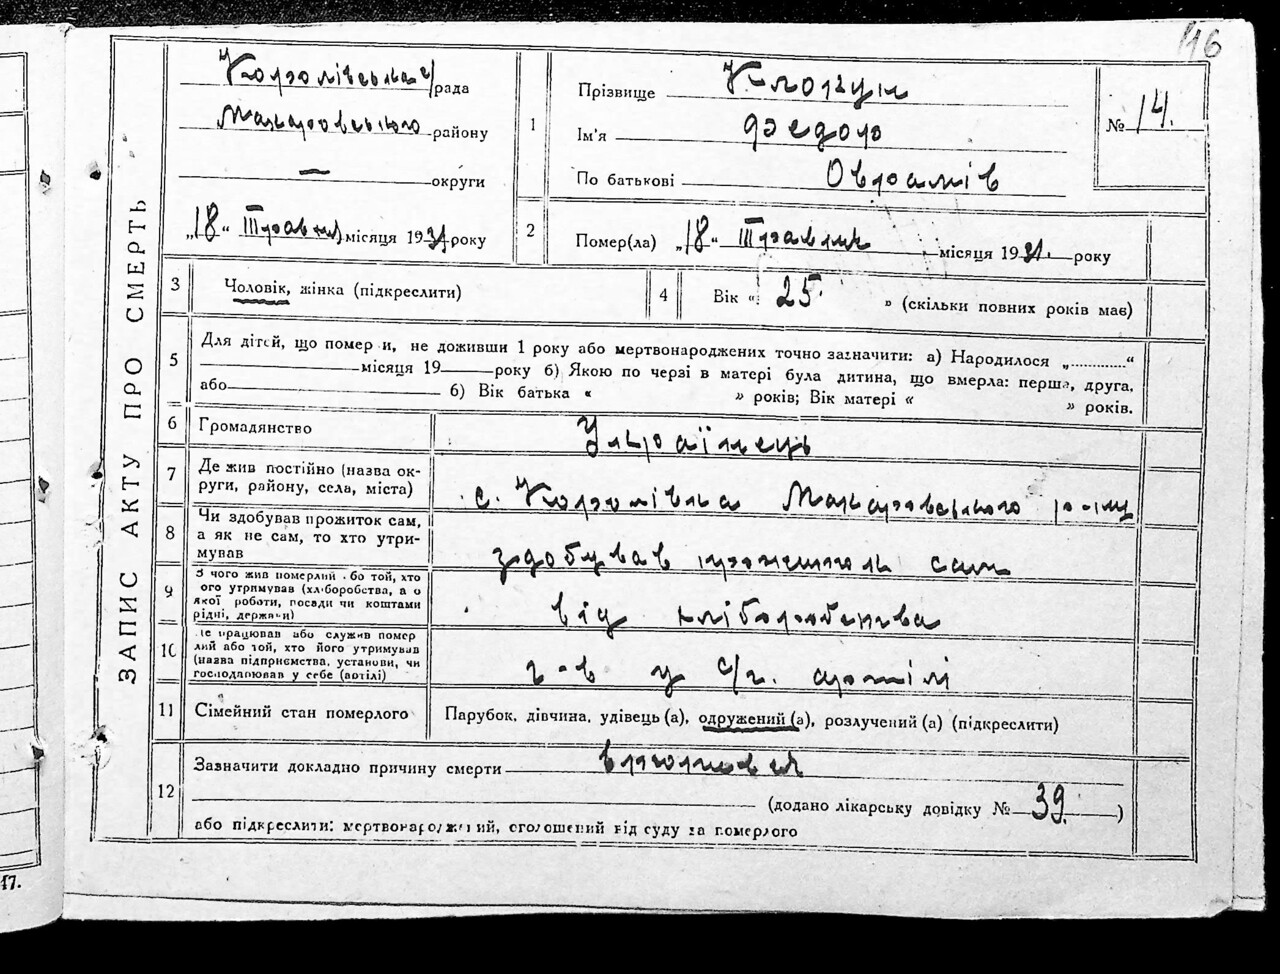 116
Королівська с/рада
Макарівського району
— округи
„18“ Травня місяця 1931 року
ЗАПИС АКТУ ПРО СМЕРТЬ
1
Прізвище
Ім'я Федор
По батькові Оврамів
№ 14.
2 Помер(ла) „18“ Травня місяця 1931. року
3 Чоловік, жінка (підкреслити)
4 Вік « 25 » (скільки повних років мав)
5 Для дітей, що помер и, не доживши 1 року або мертвонароджених точно зазначити: а) Народилося „............“
місяця 19 року б) Якою по черзі в матері була дитина, що вмерла: перша, друга,
або 6) Вік батька « » років; Вік матері « » років.
6 Громадянство Українець
7 Де жив постійно (назва ок-
руги, району, села, міста)
с. Королівка Макарівського р-ну
8 Чи здобував прожиток сам,
а як не сам, то хто утри-
мував
здобував прожиток сам
9 З чого жив померлий або той, хто
його утримував (хліборобства, або
якої роботи, посади чи коштами
рідні, держави)
від хліборобства
10 Де працював або служив помер
лий або той, хто його утримував
(назва підприємства, установи, чи
господарював у себе (артілі)
у с/г. артілі
11 Сімейний стан померлого Парубок, дівчина, удівець (а), одружений (а), розлучений (а) (підкреслити)
12 Зазначити докладно причину смерти
(додано лікарську довідку № 39. )
або підкреслити: мертвонароджений, оголошений від суду за померлого
17.